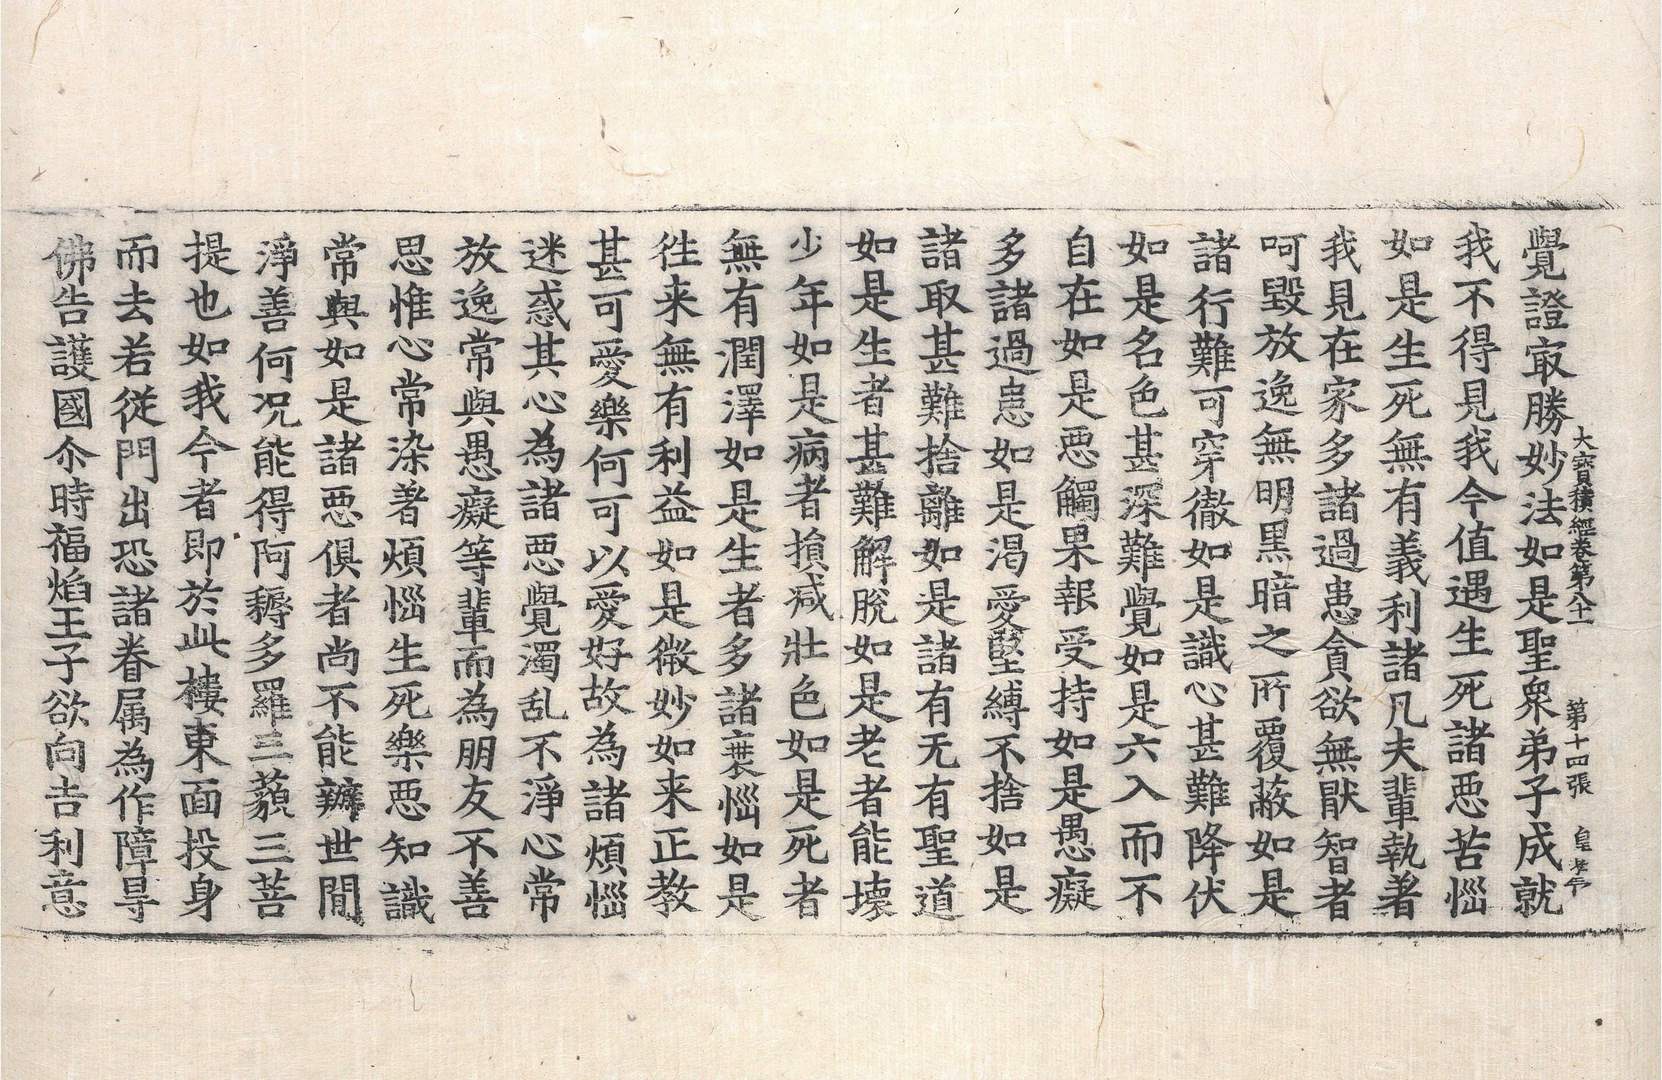 大寶積經卷第八十一 第十四張
覺證㝡勝妙法如是聖衆弟子成就
我不得見我今值遇生死諸惡苦惱
如是生死無有義利諸凡夫輩執著
我見在家多諸過患貪欲無厭智者
呵毀放逸無明黑暗之所覆蔽如是
諸行難可穿徹如是識心甚難降伏
如是名色甚深難覺如是六入而不
自在如是惡觸果報受持如是愚癡
多諸過患如是渴愛堅縛不捨如是
諸取甚難捨離如是諸有无有聖道
如是生者甚難解脫如是老者能壞
少年如是病者損減壯色如是死者
無有潤澤如是生者多諸衰惱如是
徃来無有利益如是微妙如来正教
甚可愛樂何可以愛好故為諸煩惱
迷惑其心為諸惡覺濁乱不淨心常
放逸常與愚癡等輩而為朋友不善
思惟心常染著煩惱生死樂惡知識
常與如是諸惡俱者尚不能辦世閒
淨善何况能得阿耨多羅三藐三菩
提也如我今者即於此樓東面投身
而去若從門出恐諸眷属為作障㝵
佛告護國尒時福焰王子欲向吉利意